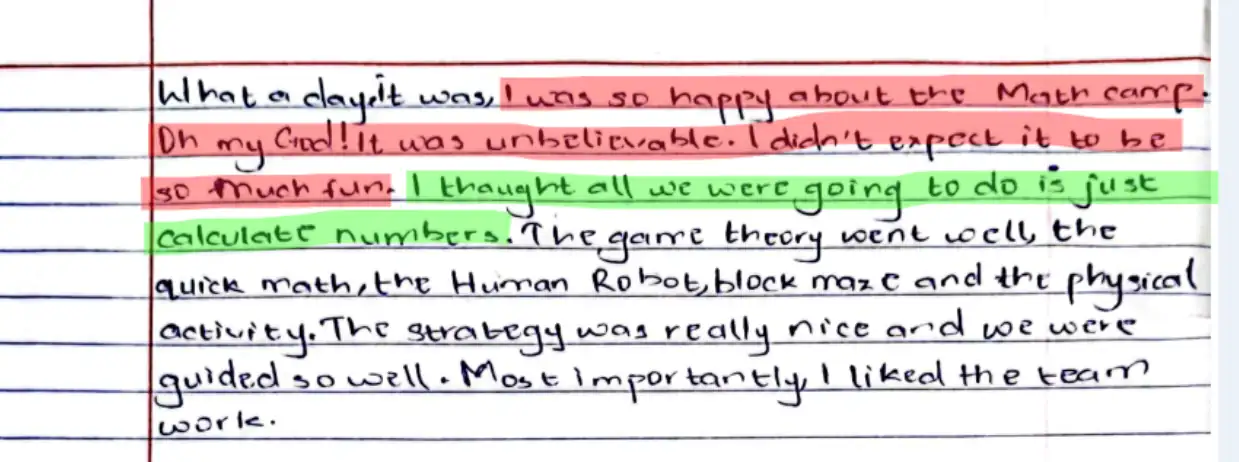 What a day,it was, I was so happy about the Math camp.
Oh my God! It was unbelievable. I didn't expect it to be
so much fun. I thaught all we were going to do is just
calculate numbers. The game theory went well, the
quick math, the Human Robot, block maze and the physical
activity. The strategy was really nice and we were
guided so well. Most importantly, I liked the team
work.